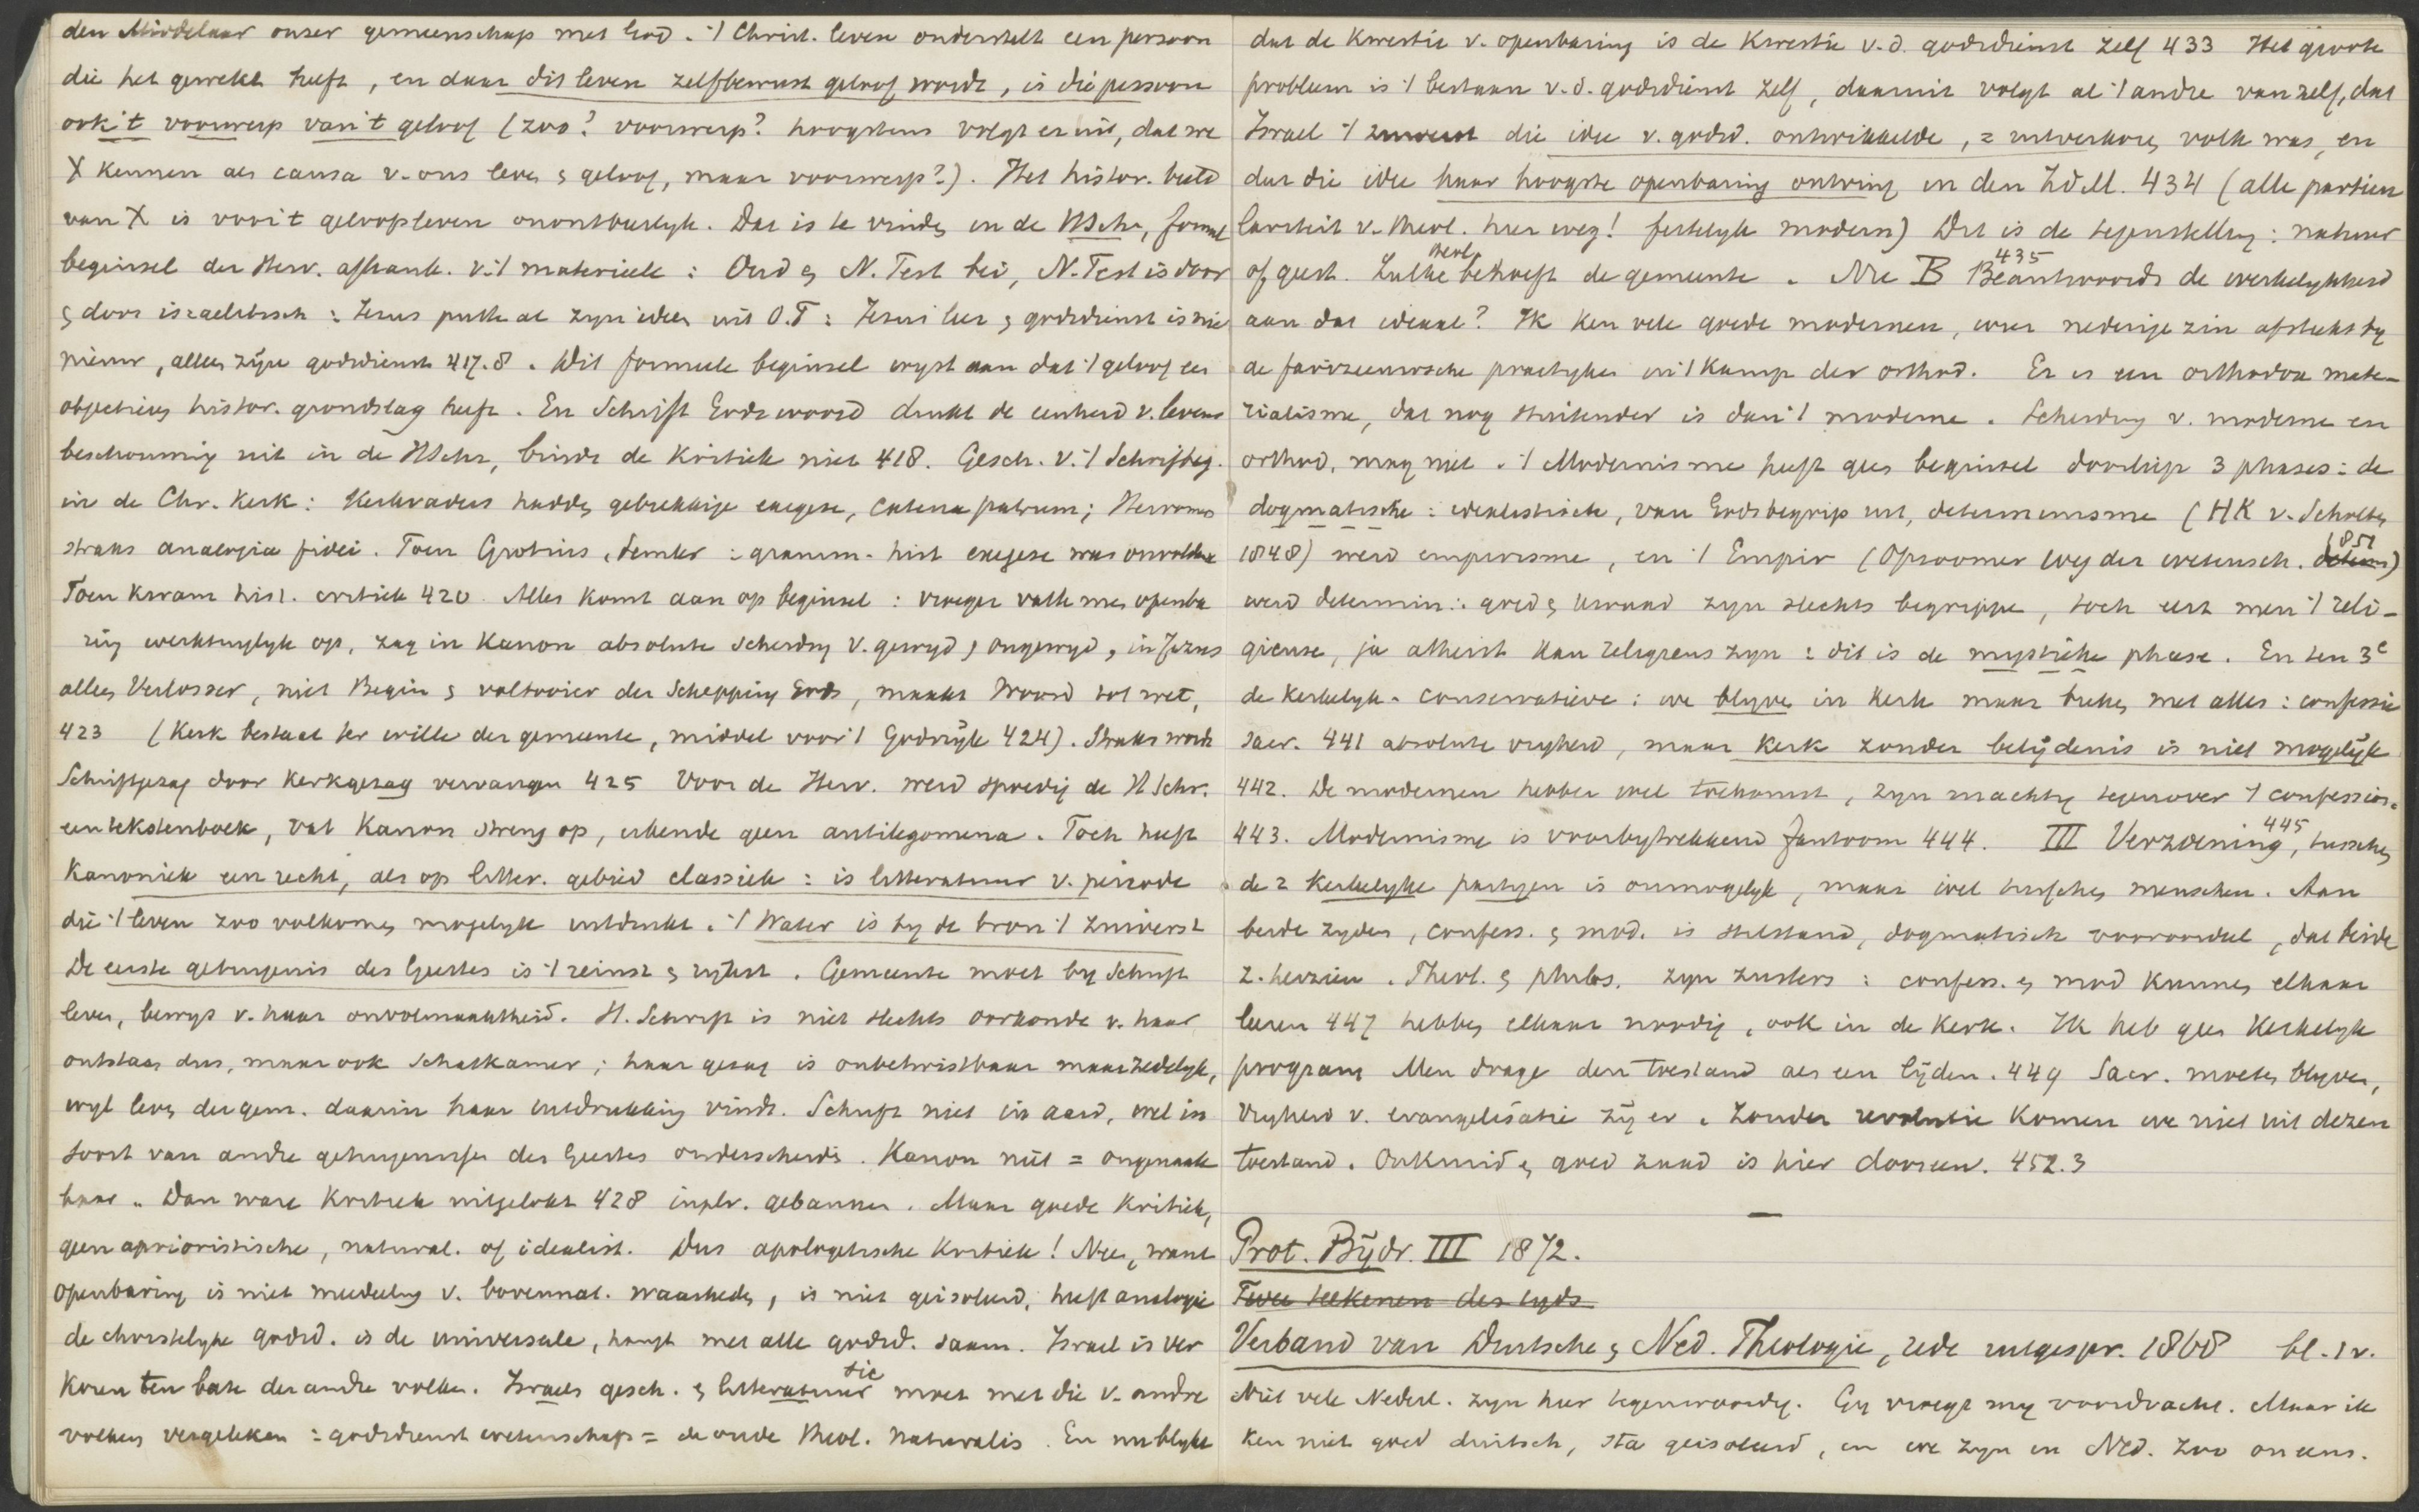 den Middelaar onzer gemeenschap met God. 't Christ. leven onderstelt een persoon
die het gewekt heeft, en daar dit leven zelfbewust geloof wordt, is die persoon
ook 't voorwerp van 't geloof (zoo? voorwerp? hoogstens volgt er uit, dat we
X kennen als causa v. ons leven & geloof, maar voorwerp?). Het histor. beeld
van X is voor 't geloofsleven onontbeerlyk. Dat is te vinden in de HSchr, formeel
beginsel der Herv. afhank. v. 't materieele: Oud & N. Test bei, N. Test is door
& door israelitisch: Jezus putte al zyn ideen uit O.T: Jezus' leer & godsdienst is niet
nieuw, alleen zijn godsdienst 417.8. Dit formeele beginsel wyst aan dat 't geloof een
objectieven histor. grondslag heeft. En Schrift Gods woord drukt de eenheid v. levens
beschouwing uit in de HSchr, bindt de kritiek niet 418. Gesch. v. 't Schriftbeg.
in de Chr. Kerk: Kerkvaders hadden gebrekkige exegese, catena patrum; Hervormers
straks analogia fidei. Toen Grotius, Semler: gramm. hist exegese was onvoldoende
Toen kwam hist. critiek 420. Alles komt aan op beginsel: vroeger vatte men openba
ring werktuiglyk op, zag in Kanon absolute scheiding v. gewyd & ongewyd, in Jezus
alleen Verlosser, niet Begin & voltooier der Schepping Gods, maakt Woord tot wet,
423 (Kerk bestaat ter wille der gemeente, middel voor 't Godsrijk 424). Straks wordt
Schriftgezag door Kerkgezag vervangen 425 Voor de Herv. werd spoedig de H Schr.
een tekstenboek, vat Kanon streng op, erkende geen antilegomena. Toch heeft
Kanoniek een recht, als op litter. gebied classiek: is litteratuur v. periode
die 't leven zoo volkomen mogelyk uitdrukt. 't Water is by de bron 't zuiverst
De eerste getuigenis des Geestes is 't reinst & rijkst. Gemeente moet by Schrift
leven, bewys v. haar onvolmaaktheid. H. Schrift is niet slechts oorkonde v. haar
ontstaan dus, maar ook Schatkamer; haar gezag is onbetwistbaar maar zedelyk,
wyl leven der gem. daarin haar uitdrukking vindt. Schrift niet in aard, wel in
soort van andre getuigenissen des Geestes onderscheiden. Kanon niet = ongenaak
baar. Dan ware Kritiek uitgelokt 428 in plv. gebannen. Maar goede Kritiek,
geen aprioristische, natural. of idealist. Dus apologetische Kritiek! Nee, want
Openbaring is niet mededeeling v. bovennat. waarheden, is niet geisoleerd, heeft analogie
de christelyke godsd. is de universeele, hangt met alle godsd. saam. Israel is ver
koren ten bate der andre volken. Israels gesch. & litteratuur moet met die v. andre
volken vergeleken: godsdienst wetenschap = de oude theol. naturalis. En nu blykt
dat de kwestie v. openbaring is de kwestie v. d. godsdienst zelf 433 Het groote
probleem is 't bestaan v. d. godsdienst zelf, daaruit volgt al 't andre vanzelf, dat
Israel 't zuiverst die idee v. godsd. ontwikkelde, = uitverkoren volk was, en
dat die idee haar hoogste openbaring ontving in den Zd.M. 434 (alle particu
lariteit v. theol. hier weg! feitelyk modern) Dit is de tegenstelling: natuur
of geest. Zulke theol. behoeft de gemeente. Nu B 435 Beantwoordt de werkelykheid
aan dat ideaal? Ik ken vele goede modernen, wier nederige zin afsteekt by
de farizeeuwsche praktyken in 't kamp der orthod. Er is een orthodox mate-
rialisme, dat nog stuitender is dan 't moderne. Scheiding v. moderne en
orthod. mag niet. 't Modernisme heeft geen beginsel doorliep 3 phases: de
dogmatische: idealistisch, van Godsbegrip uit, determinisme (HK v. Scholten
1848) werd empirisme, en 't Empir (Opzoomer weg der wetensch. 1851)
werd determin: goed & kwaad zyn slechts begrippen, toch eert men 't reli-
gieuse, ja atheist kan religieus zyn: dit is de mystieke phase. En ten 3e
de kerkelyk-conservatieve: we blyven in kerk maar breken met alles: confessie
sacr. 441 absolute vryheid, maar kerk zonder belijdenis is niet mogelijk
442. De modernen hebben wel toekomst, zyn machtig tegenover 't confession.
443. Modernisme is voorbytrekkend fantoom 444. III Verzoening 445, tusschen
de 2 kerkelyke partyen is onmogelyk, maar wel tusschen menschen. Aan
beide zyden, confess. & mod. is stilstand, dogmatisch vooroordeel, dat beide
z. herzien. Theol. & philos. zyn zusters: confess. & mod kunnen elkaar
leeren 447 hebben elkaar noodig, ook in de kerk. Ik heb geen kerkelyk
program Men drage den toestand als een lijden. 449 Sacr. moeten blyven,
vryheid v. evangelisatie zij er. Zonder revolutie komen we niet uit dezen
toestand. Onkruid & goed zaad is hier dooreen. 452.3
Prot. Bijdr. III 1872.
Twee teekenen des tyds
Verband van Duitsche & Ned. Theologie, rede uitgespr. 1868 bl. 1v.
Niet vele Nederl. zyn hier tegenwoordig. Gy vroegt my voordracht. Maar ik
ken niet goed duitsch, sta geisoleerd, en we zyn in Ned. zoo oneens.